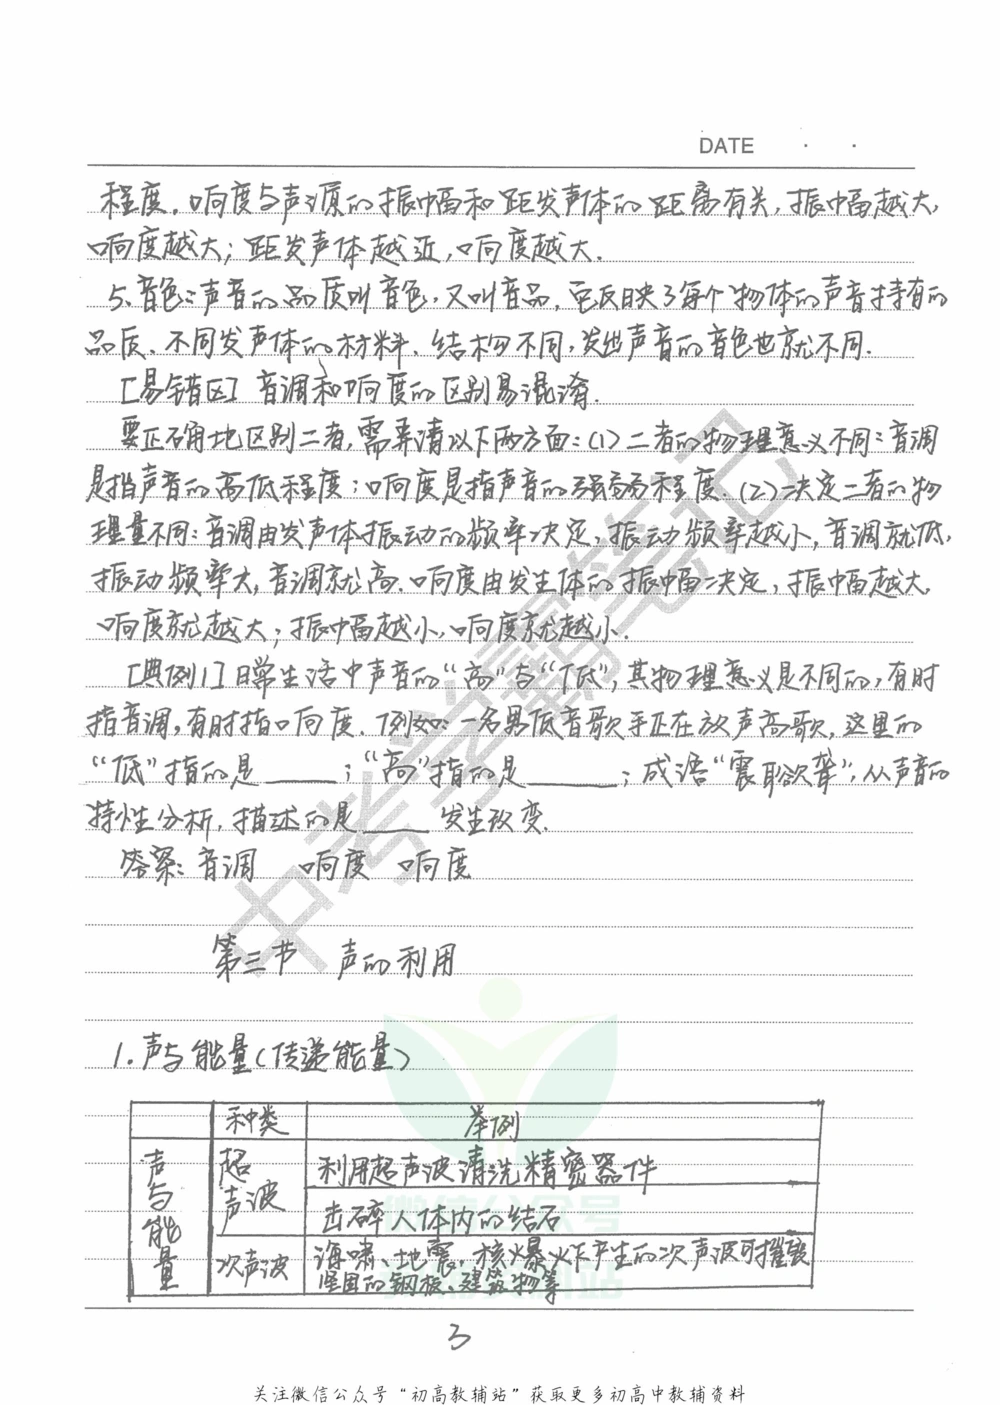 DATE · ·
程度。响度与声源的振幅和距发声体的距离有关,振幅越大,
响度越大;距发声体越近,响度越大.
5.音色:声音的品质叫音色,又叫音品,它反映了每个物体的声音特有的
品质.不同发声体的材料、结构不同,发出声音的音色也就不同.
[易错区] 音调和响度的区别易混淆.
要正确地区别二者,需弄清以下两方面:(1)二者的物理意义不同:音调
是指声音的高低程度;响度是指声音的强弱程度.(2)决定二者的物
理量不同:音调由发声体振动的频率决定,振动频率越小,音调就低,
振动频率大,音调就高.响度由发生体的振幅决定,振幅越大,
响度就越大;振幅越小,响度就越小.
[典例1]日常生活中声音的“高”与“低”,其物理意义是不同的,有时
指音调,有时指响度.例如:一名男低音歌手正在放声高歌,这里的
“低”指的是____;“高”指的是____;成语“震耳欲聋”,从声音的
特性分析,描述的是____发生改变.
答案:音调 响度 响度
第三节 声的利用
1.声与能量(传递能量)
种类 举例
声与能量 超声波 利用超声波清洗精密器件
击碎人体内的结石
次声波 海啸、地震、核爆炸产生的次声波可摧毁
坚固的钢板、建筑物等
3
关注微信公众号“初高教辅站”获取更多初高中教辅资料
中考学霸笔记
微信公众号